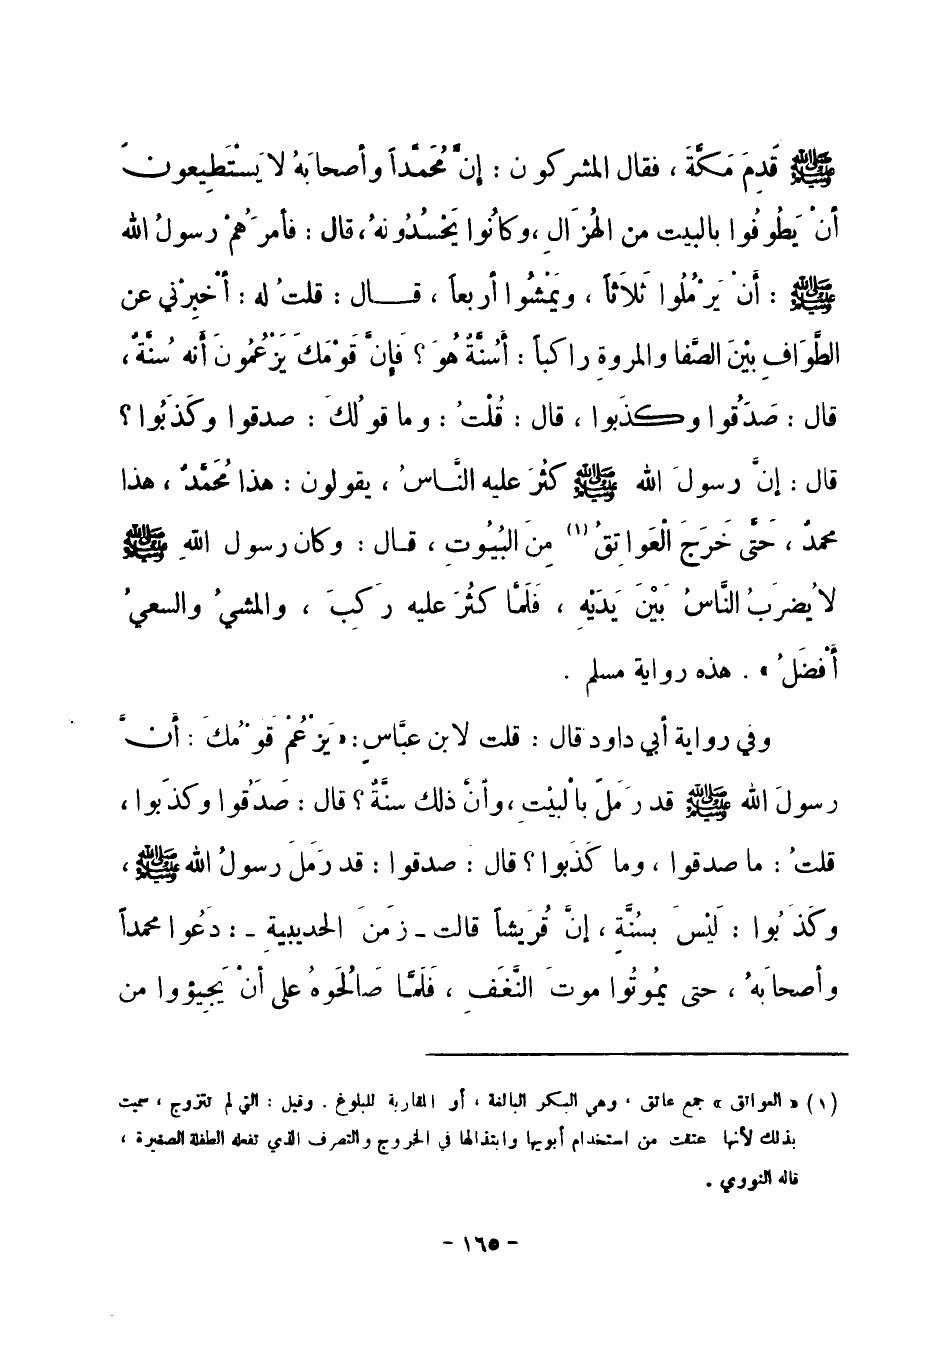 ﷺ قَدِمَ مَكَّةَ ، فقال المشركون : إِنَّ مُحَمَّداً وأصحابَهُ لا يَسْتَطِيعونَ
أنْ يَطُوفُوا بالبيت من الهُزَالِ ،وكانُوا يَحْسُدُونهُ،قال : فأمرَهُمْ رسولُ الله
ﷺ : أَنْ يَرْمُلُوا ثَلاثاً ، ويَمْشُوا أربعاً ، قال : قلتُ له : أخْبِرْني عن
الطَّوَافِ بيْنَ الصَّفا والمروةِ راكباً : أَسُنَّةٌ هُوَ ؟ فَإِنَّ قَوْمَكَ يَزْعُمُونَ أَنه سُنَّةٌ ،
قال : صَدَقُوا وكذَبوا ، قال : قُلْتُ : وما قولُكَ : صدقوا وكَذَبُوا ؟
قال : إنَّ رسولَ الله ﷺ كَثُرَ عليه النَّاسُ ، يقولون : هذا مُحَمَّدٌ ، هذا
محمدٌ ، حَتَّى خَرَجَ الْعَوَاتِقُ (١) مِنَ البُيُوتِ ، قال : وكان رسول اللهِ ﷺ
لا يُضرَبُ النَّاسُ بَيْنَ يَدَيْهِ ، فَلَمَّا كَثُرَ عليه رَكِبَ ، والمشيُ والسعيُ
أَفْضَلُ » . هذه رواية مسلم .
وفي رواية أبي داود قال : قلت لابن عبَّاسٍ : « يَزْعُمْ قَوْمُكَ : أَنَّ
رسولَ الله ﷺ قد رَمَلَ بالْبيْتِ ،وأنَّ ذلك سنَّةٌ ؟ قال : صَدَقُوا وكذَبوا ،
قلتُ : ما صدقوا ، وما كَذَبوا ؟ قال : صدقوا : قد رَمَلَ رسولُ الله ﷺ ،
وكَذَبُوا : لَيْسَ بسُنَّةٍ ، إنَّ قُرَيشاً قالت ـ زَمَنَ الحديبيةِ ـ : دَعُوا محمداً
وأصحابَهُ ، حتى يَمُوتُوا موتَ النَّغَفِ ، فَلَمَّا صَالَحَوهُ على أنْ يَجِيؤوا من
(١) « العواتق » جمع عاتق ، وهي البكر البالغة ، أو المقاربة للبلوغ . وقيل : التي لم تتزوج ، سميت
بذلك لأنها عتقت من استخدام أبويها وابتذالها في الخروج والتصرف الذي تفعله الطفلة الصغيرة ،
قاله النووي .
- ١٦٥ -